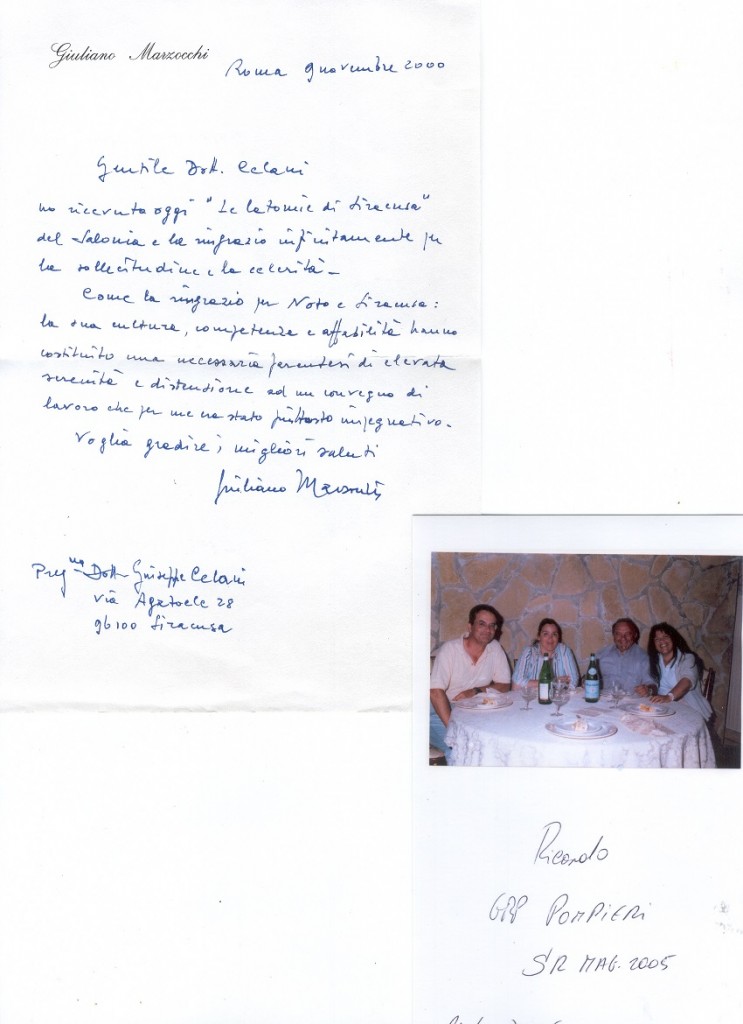 Giuliano Marzocchi
Roma 9 novembre 2000
Gentile Dott. Celani
ho ricevuto oggi "Le latomie di Siracusa"
del Salonia e la ringrazio infinitamente per
la sollecitudine e la celerità -
Come la ringrazio per Noto e Siracusa:
la sua cultura, competenza e affabilità hanno
costituito una necessaria parentesi di elevata
serenità e distensione ad un convegno di
lavoro che per me era stato piuttosto impegnativo.
Voglia gradire i migliori saluti
Giuliano Marzocchi
Preg.mo Dott. Giuseppe Celani
via Agatocle 28
96100 Siracusa
Ricordo
GRP POMPIERI
SR MAG. 2005